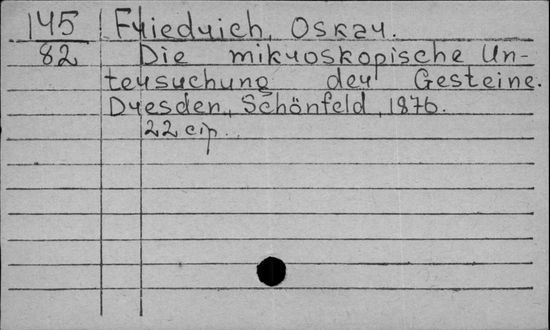 145 Friedrich, Oskar.
82 Die mikroskopische Un-
tersuchung der Gesteine.
Dresden, Schönfeld, 1876.
22 стр.